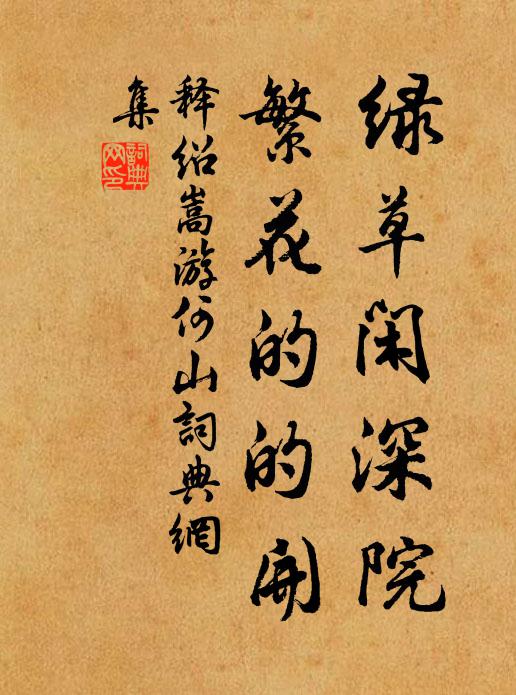 绿草闲深院
繁花的的开
释绍嵩游何山詞典網
集
詞典
网印